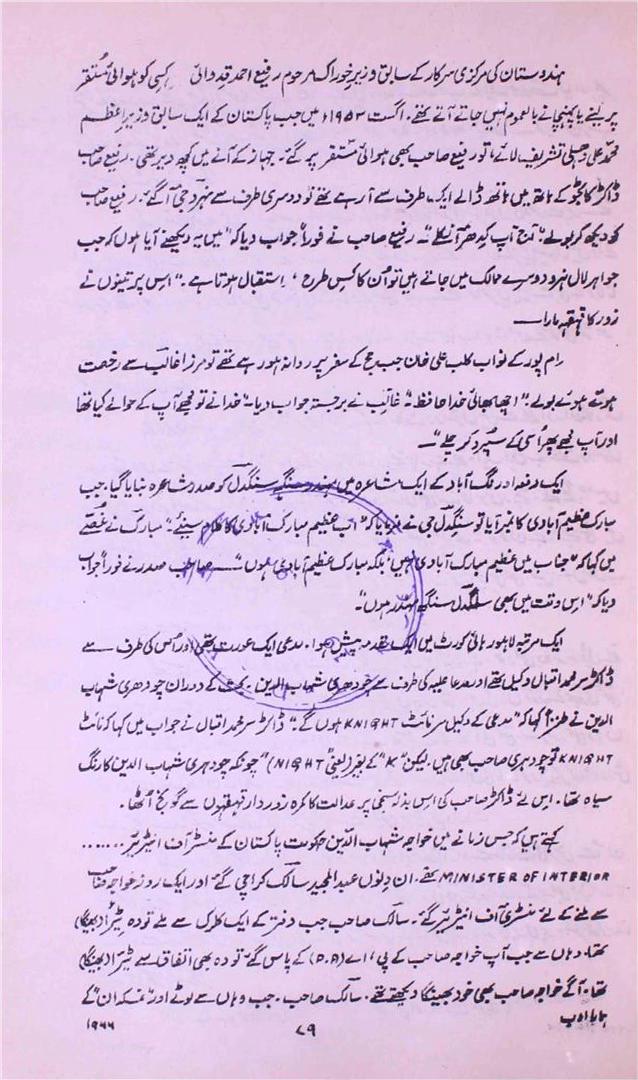 ہندوستان کی مرکزی سرکار کے سابق وزیرِ خوراک مرحوم رفیع احمد قدوائی کسی کو ہوائی مُستقر
پر لینے یا پہنچانے بالعموم نہیں جاتے آتے تھے۔ اگست ۱۹۵۳ء میں جب پاکستان کے ایک سابق وزیرِ اعظم
محمد علی دہلی تشریف لائے، تو رفیع صاحب بھی ہوائی مستقر پر گئے۔ جہاز کے آنے میں کچھ دیر تھی۔ رفیع صاحب
ڈاکٹر کاٹجو کے ہاتھ میں ہاتھ ڈالے ایک طرف سے آ رہے تھے تو دوسری طرف سے نہرو جی آ گئے۔ رفیع صاحب
کو دیکھ کر بولے: "آج آپ کیدھر آ نکلے"۔ رفیع صاحب نے فوراً جواب دیا کہ "میں یہ دیکھنے آیا ہوں کہ جب
جواہر لال نہرو دوسرے ممالک میں جاتے ہیں تو اُن کا کِس طرح اِستقبال ہوتا ہے۔" اس پر تینوں نے
زور کا قہقہہ مارا——
رام پور کے نواب کلب علی خان جب حج کے سفر پر روانہ ہو رہے تھے تو مرزا غالب سے رخصت
ہوتے ہوئے بولے: "اچھا بھائی خدا حافظ۔" غالب نے برجستہ جواب دیا۔ "خدا نے تو مجھے آپ کے حوالے کیا تھا
اور آپ مجھے پھر اُسی کے سُپرد کر چلے"۔
ایک دفعہ اورنگ آباد کے ایک مشاعرہ میں مہندر سنگھ سنگدل کو صدرِ مشاعرہ بنایا گیا۔ جب
مبارک عظیم آبادی کا نمبر آیا تو سنگدل جی نے فرمایا کہ "اب عظیم مبارک آبادی کا کلام سُنیئے" مبارک نے غصّے
میں کہا کہ "جناب میں عظیم مبارک آبادی نہیں، بلکہ مبارک عظیم آبادی ہوں"—— صاحب صدر نے فوراً جواب
دیا کہ "اس وقت میں بھی سنگدل سنگھ مہندر ہوں"۔
ایک مرتبہ لاہور ہائی کورٹ میں ایک مقدمہ پیش ہوا۔ مدعی ایک عورت تھی اور اُس کی طرف سے
ڈاکٹر سر محمد اقبال وکیل تھے اور مدعا علیہ کی طرف سے چودھری شہاب الدین۔ بحث کے دوران چودھری شہاب
الدین نے طنزاً کہا کہ "مدعی کے وکیل سر نائٹ KNIGHT ہوں گے۔" ڈاکٹر سر محمد اقبال نے جواب میں کہا کہ نائٹ
KNIGHT تو چودہری صاحب بھی ہیں۔ لیکن "K" کے بغیر (یعنی NIGHT)" چونکہ چودہری شہاب الدین کا رنگ
سیاہ تھا۔ اس لیے ڈاکٹر صاحب کی اس بذلہ سنجی پر عدالت کا کمرہ زوردار قہقہوں سے گونج اُٹھا۔
کہتے ہیں کہ جس زمانے میں خواجہ شہاب الدّین حکومتِ پاکستان کے منسٹر آف انٹیریر . . . . . .
MINISTER OF INTERIOR تھے۔ ان دِنوں عبدالمجید سالک کراچی گئے اور ایک روز خواجہ صاحب
سے ملنے کے لیے منسٹری آف انٹیریر گئے۔ سالک صاحب جب دفتر کے ایک کلرک سے ملے تو وہ ٹیڑا (بھینگا)
تھا۔ وہاں سے جب آپ خواجہ صاحب کے پی، اے (P.A) کے پاس گئے تو وہ بھی اتفاق سے ٹیڑا (بھینگا)
تھا۔ آگے خواجہ صاحب بھی خود بھینگا دیکھتے تھے۔ سالک صاحب۔ جب وہاں سے لوٹے اور "نمکدان" کے
ہمارا ادب
۷۹
۱۹۶۶